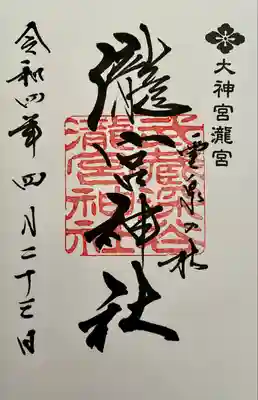 大神宮瀧宮
霊泉の杜
瀧宮神社
武蔵深谷
瀧宮神社
令和四年四月二十三日